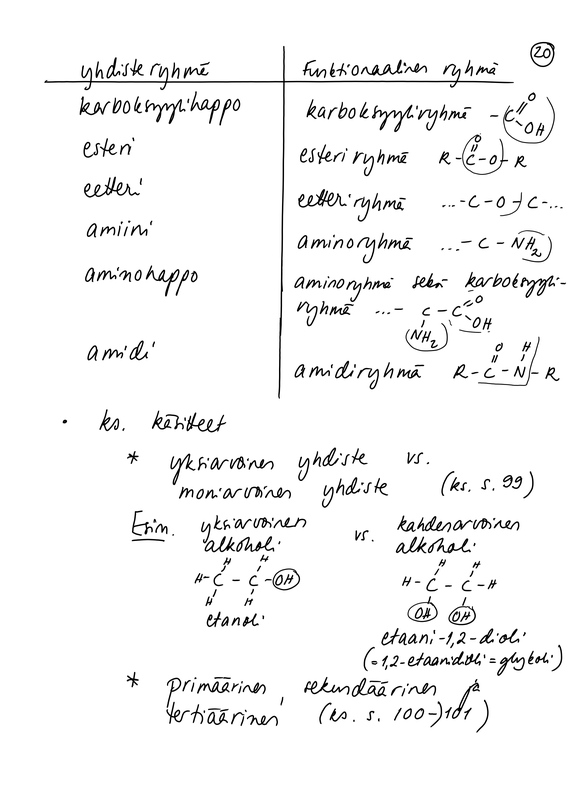 20
yhdisteryhmä funktionaalinen ryhmä
karboksyylihappo karboksyyliryhmä -C=O-OH
esteri esteriryhmä R-C(=O)-O-R
eetteri eetteriryhmä ...-C-O-C-...
amiini aminoryhmä ...-C-NH2
aminohappo aminoryhmä sekä karboksyyli-
ryhmä ...- C - C =O OH
NH2
amidi amidiryhmä R-C(=O)-N(H)-R
• ks. käsitteet
* yksiarvoinen yhdiste vs.
moniarvoinen yhdiste (ks. s. 99)
Esim. yksiarvoinen vs. kahdenarvoinen
alkoholi alkoholi
H H H H
H-C-C-OH H-C-C-H
H H OH OH
etanoli etaani-1,2-dioli
(=1,2-etaanidioli=glykoli)
* primäärinen, sekundäärinen ja
tertiäärinen (ks. s. 100-101)